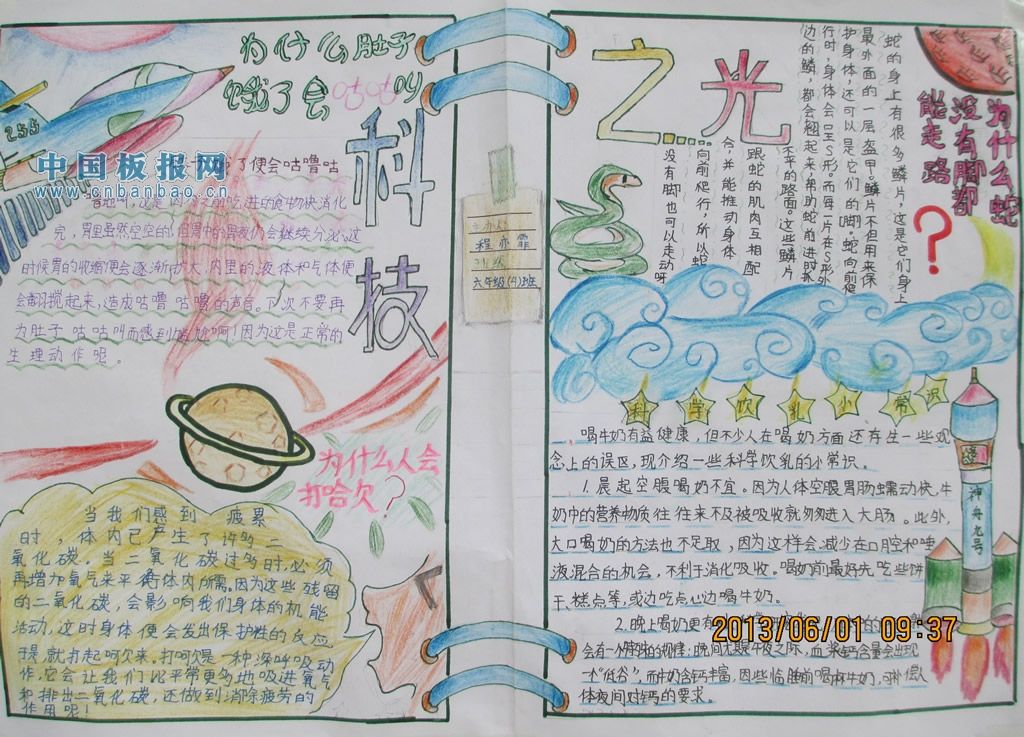 为什么肚子
饿了会咕咕叫
科技
255
中国板报网
www.cnbanbao.cn
了便会咕噜咕
完，胃里虽然空空的，但胃中的胃液仍会继续分泌。这
时候胃的收缩便会逐渐扩大，内里的液体和气体便
会翻搅起来，造成咕噜咕噜的声音。下次不要再
为肚子咕咕叫而感到尴尬啊！因为这是正常的
生理动作呢。
为什么人会
打哈欠？
当我们感到疲累
时，体内已产生了许多二
氧化碳。当二氧化碳过多时，必须
再增加氧气来平衡体内所需。因为这些残留
的二氧化碳，会影响我们身体的机能
活动，这时身体便会发出保护性的反应
于是，就打起呵欠来。打呵欠是一种深呼吸动
作，它会让我们比平常更多地吸进氧气
和排出二氧化碳，还做到消除疲劳的
作用呢！
程亦霏
六年级(4)班
之光
为什么蛇
没有脚都
能走路
？
蛇的身上有很多鳞片，这是它们身上
最外面的一层盔甲。鳞片不但用来保
护身体，还可以是它们的脚。蛇向前爬
行时，身体会呈S形。而每一片在S形外
边的鳞，都会翘起来，帮助蛇前进时抓
不平的路面。这些鳞片
跟蛇的肌肉互相配
合，并能推动身体
向前爬行，所以蛇
没有脚也可以走动呀
科学饮乳小常识
喝牛奶有益健康，但不少人在喝奶方面还存在一些观
念上的误区，现介绍一些科学饮乳的小常识。
1.晨起空腹喝奶不宜。因为人体空腹胃肠蠕动快，牛
奶中的营养物质往往来不及被吸收就匆匆进入大肠。此外，
大口喝奶的方法也不足取，因为这样会减少在口腔和唾
液混合的机会，不利于消化吸收。喝奶前最好先吃些饼
干、糕点等，或边吃点心边喝牛奶。
2.晚上喝奶更有
会有一个特殊的规律：晚间尤其午夜之际，血浆钙含量会出现
一个“低谷”，而牛奶含钙丰富，因些临睡前喝杯牛奶，可补偿人
体夜间对钙的要求。
神舟九号
2013/06/01 09:37